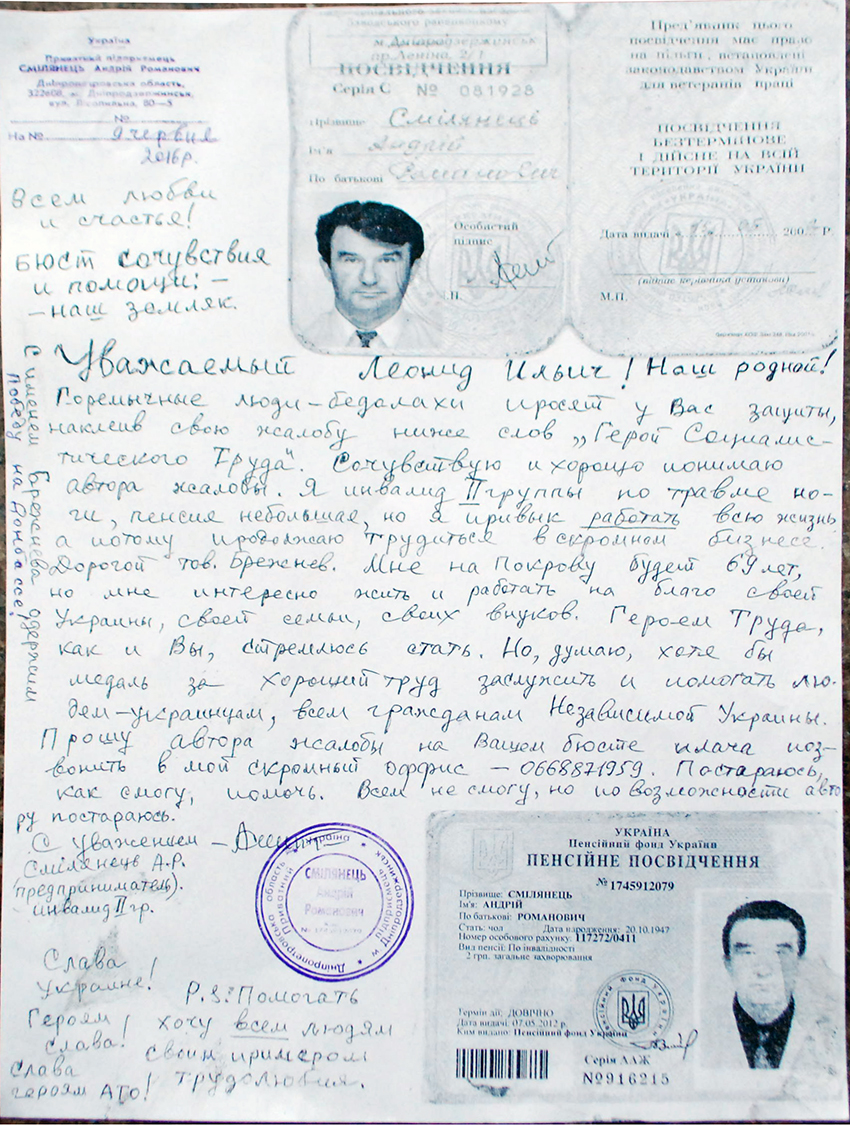 Україна
Приватний підприємець
СМІЛЯНЕЦЬ Андрій Романович
Дніпропетровська область,
322608, м. Дніпродзержинськ,
вул. 80—5
№
На № 9 червня
2016р.
Всем любви
и счастья!
Бюст сочувствия
и помощи: –
– наш земляк.
Заводського райвиконкому
м.Дніпродзержинськ
пр.Леніна, 2/1
ПОСВІДЧЕННЯ
Серія С № 081928
Прізвище Смілянець
Ім'я Андрій
По батькові Романович
Особистий
підпис
М.П.
Пред'явник цього
посвідчення має право
на пільги, встановлені
законодавством України
для ветеранів праці
ПОСВІДЧЕННЯ
БЕЗТЕРМІНОВЕ
І ДІЙСНЕ НА ВСІЙ
ТЕРИТОРІЇ УКРАЇНИ
Дата видачі 05 200 р.
(підпис керівника установи)
М.П.
С именем Брежнева одержим
победу на Донбассе!
Уважаемый Леонид Ильич! Наш родной!
Горемычные люди-бедолахи просят у Вас защиты,
наклеив свою жалобу ниже слов „Герой Социалис-
тического Труда". Сочувствую и хорошо понимаю
автора жалобы. Я инвалид II группы по травме но-
ги, пенсия небольшая, но я привык работать всю жизнь
а потому продолжаю трудиться в скромном бизнесе.
Дорогой тов. Брежнев. Мне на Покрову будет 69 лет,
но мне интересно жить и работать на благо своей
Украины, своей семьи, своих внуков. Героем Труда,
как и Вы, стремлюсь стать. Но, думаю, хотя бы
медаль за хороший труд заслужить и помогать лю-
дем-украинцам, всем гражданам Независимой Украины.
Прошу автора жалобы на Вашем бюсте плача поз-
вонить в мой скромный оффис – 0668871959. Постараюсь,
как смогу, помочь. Всем не смогу, но по возможности авто
ру постараюсь.
С уважением –
Смілянець А.Р.
(предприниматель).
– инвалид II гр.
Україна
Дніпропетровська область
м.Дніпродзержинськ
Приватний підприємець
СМІЛЯНЕЦЬ
Андрій
Романович
Слава
Украине!
Героям
слава!
Слава
героям АТО!
P.S: Помогать
хочу всем людям
своим примером
трудолюбия.
УКРАЇНА
Пенсійний фонд України
ПЕНСІЙНЕ ПОСВІДЧЕННЯ
№ 1745912079
Прізвище: СМІЛЯНЕЦЬ
Ім'я: АНДРІЙ
По батькові: РОМАНОВИЧ
Стать: чол Дата народження: 20.10.1947
Номер особового рахунку: 117272/0411
Вид пенсії: По інвалідності
2 грп. загальне захворювання
Термін дії: ДОВІЧНО
Дата видачі: 07.05.2012 р.
Ким видано: Пенсійний фонд України
Серія ААЖ
№916215